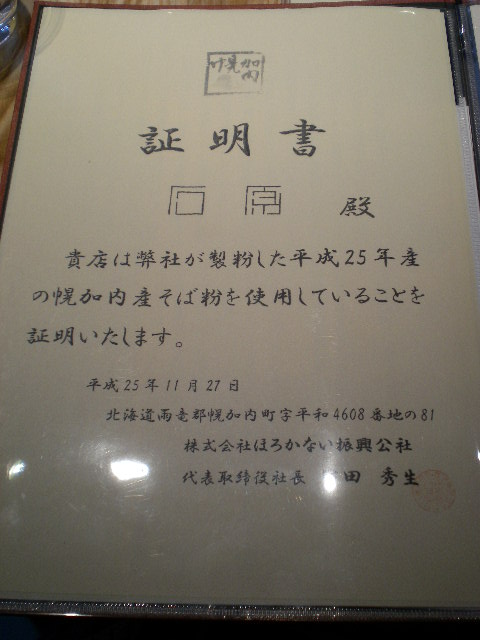 幌加内
証明書
殿
貴店は弊社が製粉した平成25年産
の幌加内産そば粉を使用していることを
証明いたします。
平成25年11月27日
北海道雨竜郡幌加内町字平和4608番地の81
株式会社ほろかない振興公社
代表取締役社長 田 秀生